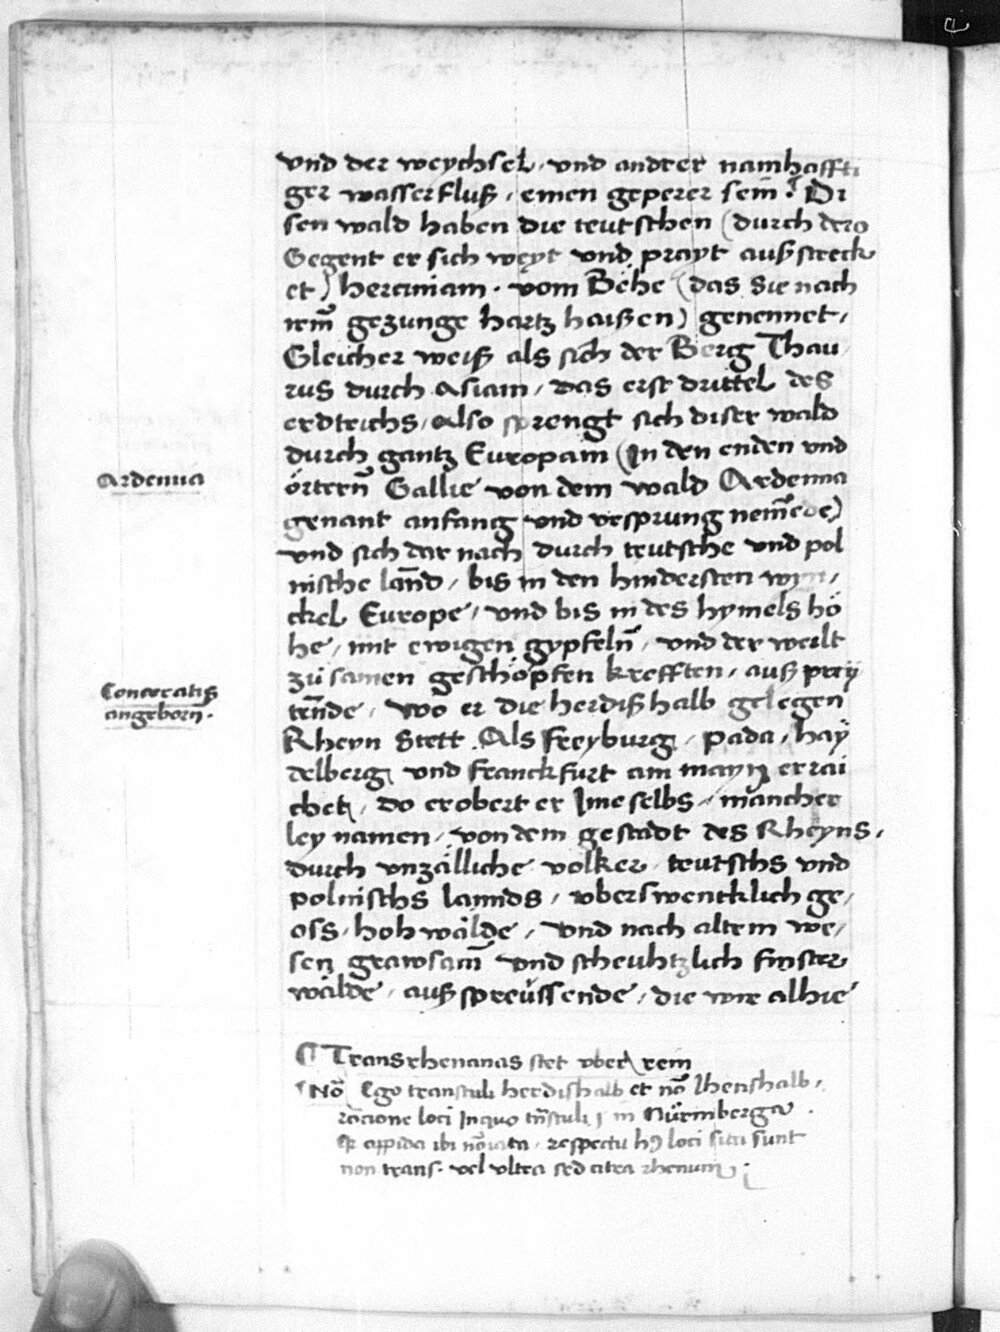 vnd der weychsel, vnd andrer namhaffti
ger wasserfluß, einen geperer sein̄. Di
sen wald haben die teutschen (durch dero
Gegent er sich weyt vnd prayt außstreck
et) herciniam. vom Behe (das Sie nach
irem̄ gezunge hartz haißen) genennet,
Gleicher weiß als sich der Berg Thau
rus durch Asiam, das erst drittel des
erdtrichs, Also sprengt sich diser wald
durch gantz Europam (In den enden vnd
Ardenna
örtern̄ Gallie von dem wald Ardenna
genant anfang vnd vrsprung nem̄ede)
vnd sich dar nach durch teutsche vnd pol
nische lan̄d, bis in den hindersten wyn,
ckel Europe, vnd bis in des hymels hö
he, mit ewigen gypfeln̄, vnd der weilt
zů samen geschöpfen krefften, auß preÿ
Concreatis
angeborn.
ten̄de, wo er die herdißhalb gelegen
Rheyn Stett. Als Freyburg, pada, haÿ
delberg vnd Franckfurt am mayn errai
chet, do erobert er Ime selbs, mancher
ley namen, von dem gestadt des Rheyns,
durch vnzälliche volker, teutschs vnd
polnischs lannds, vberswencklich ge,
oss, hoh wälde, vnd nach altem we,
sen grawsam̄ vnd scheuhtzlich finster
wälde, außspreüssende, die wir alhie
¶ Transrhenanas stet vber rein
No᷈ Ego transtuli herdishalb et no᷈ Ihenshalb,
racione loci Inquo tn̄stuli, in Nürmberga.
oppida ibi respectu loci siti sunt
non trans. vel vltra sed citra rhenum;